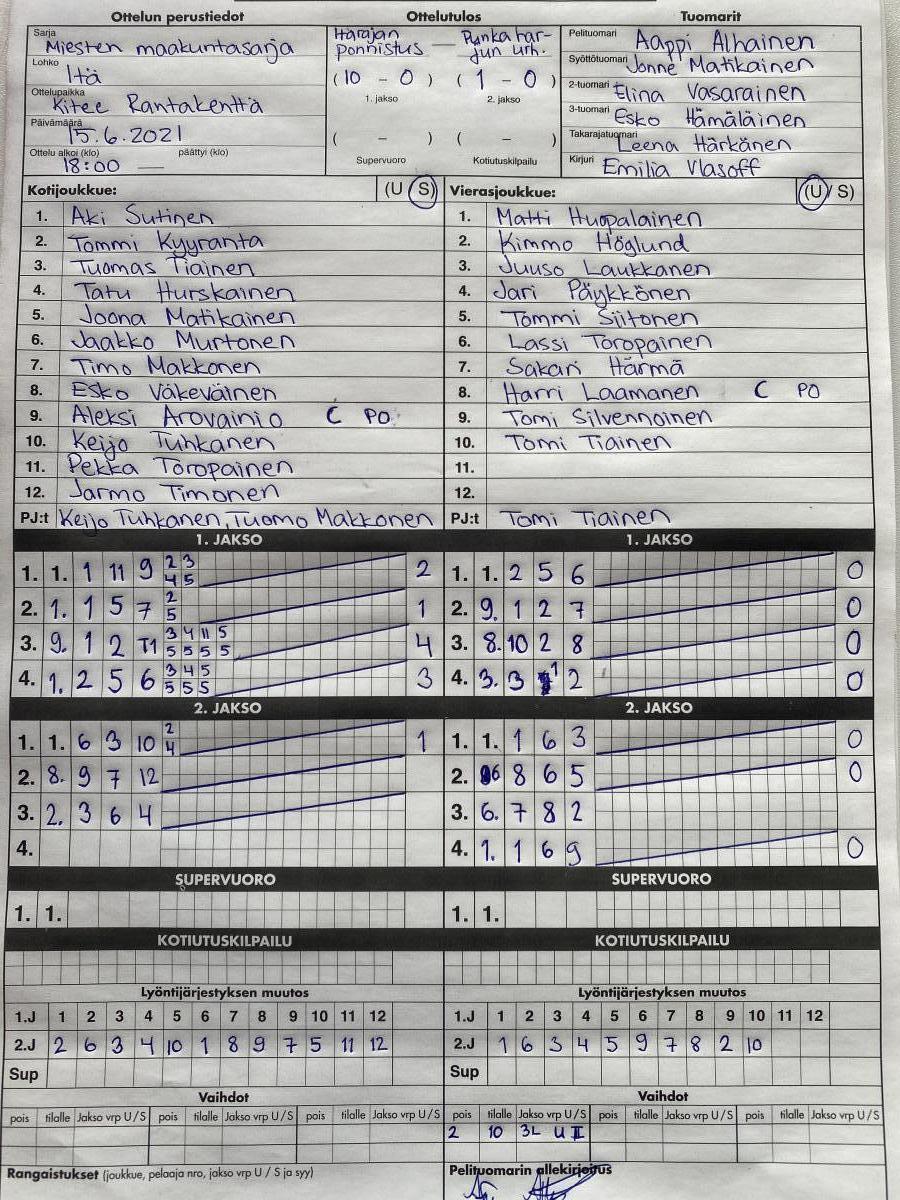 Ottelun perustiedot Ottelutulos Tuomarit
Sarja Miesten maakuntasarja
Lohko Itä
Ottelupaikka Kitee Rantakenttä
Päivämäärä 15.6.2021
Ottelu alkoi (klo) 18:00 päättyi (klo) —
Harajan ponnistus — Punkahar-
jun urh.
(10 - 0) (1 - 0)
1. jakso 2. jakso
( - ) ( - )
Supervuoro Kotiutuskilpailu
Pelituomari Aappi Alhainen
Syöttötuomari Jonne Matikainen
2-tuomari Elina Vasarainen
3-tuomari Esko Hämäläinen
Takarajatuomari Leena Härkänen
Kirjuri Emilia Vlasoff
Kotijoukkue: (U S)
1. Aki Sutinen
2. Tommi Kyyranta
3. Tuomas Tiainen
4. Tatu Hurskainen
5. Joona Matikainen
6. Jaakko Murtonen
7. Timo Makkonen
8. Esko Väkeväinen
9. Aleksi Arovainio C PO
10. Keijo Tuhkanen
11. Pekka Toropainen
12. Jarmo Timonen
PJ:t Keijo Tuhkanen, Tuomo Makkonen
Vierasjoukkue: (U / S)
1. Matti Huopalainen
2. Kimmo Höglund
3. Juuso Laukkanen
4. Jari Päykkönen
5. Tommi Siitonen
6. Lassi Toropainen
7. Sakari Härmä
8. Harri Laamanen C PO
9. Tomi Silvennoinen
10. Tomi Tiainen
11.
12.
PJ:t Tomi Tiainen
1. JAKSO
1. 1. 1 11 9 2 3 2
4 5
2. 1. 1 5 7 2 1
5
3. 9. 1 2 T1 3 4 11 5 4
5 5 5 5
4. 1. 2 5 6 3 4 5 3
5 5 5
1. JAKSO
1. 1. 2 5 6 0
2. 9. 1 2 7 0
3. 8. 10 2 8 0
4. 3. 3 1 2 0
2. JAKSO
1. 1. 6 3 10 2 1
4
2. 8. 9 7 12
3. 2. 3 6 4
4.
2. JAKSO
1. 1. 1 6 3 0
2. 6 8 6 5 0
3. 6. 7 8 2
4. 1. 1 6 9 0
SUPERVUORO SUPERVUORO
1. 1. 1. 1.
KOTIUTUSKILPAILU KOTIUTUSKILPAILU
Lyöntijärjestyksen muutos
1.J 1 2 3 4 5 6 7 8 9 10 11 12
2.J 2 6 3 4 10 1 8 9 7 5 11 12
Sup
Lyöntijärjestyksen muutos
1.J 1 2 3 4 5 6 7 8 9 10 11 12
2.J 1 6 3 4 5 9 7 8 2 10
Sup
Vaihdot
pois tilalle Jakso vrp U/S pois tilalle Jakso vrp U/S pois tilalle Jakso vrp U/S
Vaihdot
pois tilalle Jakso vrp U/S pois tilalle Jakso vrp U/S pois tilalle Jakso vrp U/S
2 10 3L U II
Rangaistukset (joukkue, pelaaja nro, jakso vrp U / S ja syy)
Pelituomarin allekirjoitus